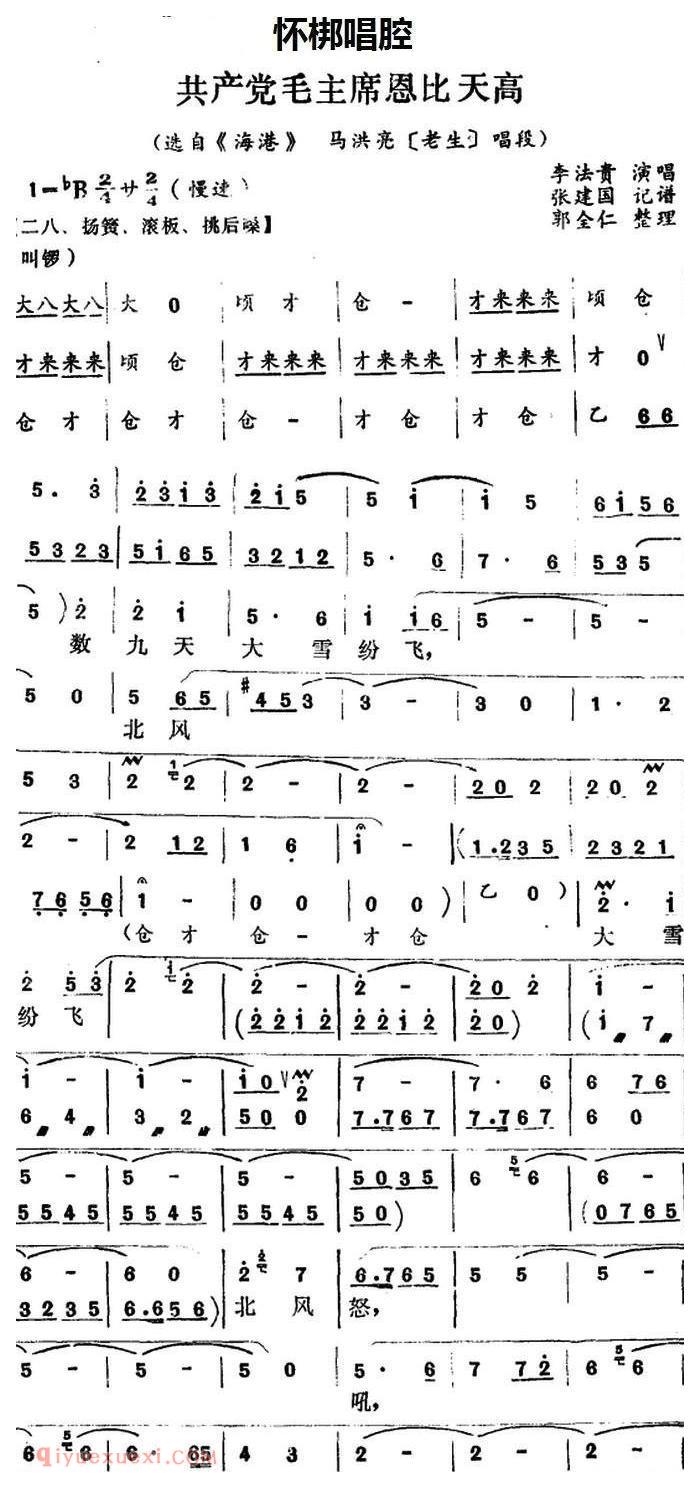 怀梆唱腔
共产党毛主席恩比天高
(选自《海港》 马洪亮〔老生〕唱段)
李法贵 演唱
1=♭B 2/4 廿 2/4 (慢速)
张建国 记谱
郭全仁 整理
【二八、扬簧、滚板、挑后嗓】
叫锣)
大八大八 | 大 0 | 顷 才 | 仓 - | 才来来来 | 顷 仓
才来来来 | 顷 仓 | 才来来来 | 才来来来 | 才来来来 | 才 0 V
仓 才 | 仓 才 | 仓 - | 才 仓 | 才 仓 | 乙 6 6
5. 3 | 2 3 1 3 | 2 1 5 | 5 1 | 1 5 | 6 1 5 6
5 3 2 3 | 5 1 6 5 | 3 2 1 2 | 5 · 6 | 7 · 6 | 5 3 5
5 ) 2 | 2 1 | 5 · 6 | 1 1 6 | 5 - | 5 -
数 九 天 大 雪 纷 飞,
5 0 | 5 6 5 | #4 5 3 | 3 - | 3 0 | 1 · 2
北 风
5 3 | 2 1 2 | 2 - | 2 - | 2 0 2 | 2 0 2
2 - | 2 1 2 | 1 6 | 1 - | (1.2 3 5 | 2 3 2 1
7 6 5 6 | 1 - | 0 0 | 0 0 ) | 乙 0 ) | 2 · 1
(仓 才 仓 - 才 仓 大 雪
2 5 3 | 2 1 2 | 2 - | 2 - | 2 0 2 | 1 -
纷 飞 (2 2 1 2 | 2 2 1 2 | 2 0) (1 7
1 - | 1 - | 1 0 V 2 | 7 - | 7 · 6 | 6 7 6
6 4 | 3 2 | 5 0 0 | 7.7 6 7 | 7.7 6 7 | 6 0
5 - | 5 - | 5 - | 5 0 3 5 | 6 5 6 | 6 -
5 5 4 5 | 5 5 4 5 | 5 5 4 5 | 5 0 ) (0 7 6 5
6 - | 6 0 | 2 2 7 | 6.7 6 5 | 5 5 | 5 -
3 2 3 5 | 6.6 5 6 ) 北 风 怒,
5 - | 5 - | 5 0 | 5 · 6 | 7 7 2 | 6 5 6
吼,
6 5 6 | 6 · 6 5 | 4 3 | 2 - | 2 - | 2 -
qiyuexuexi.com